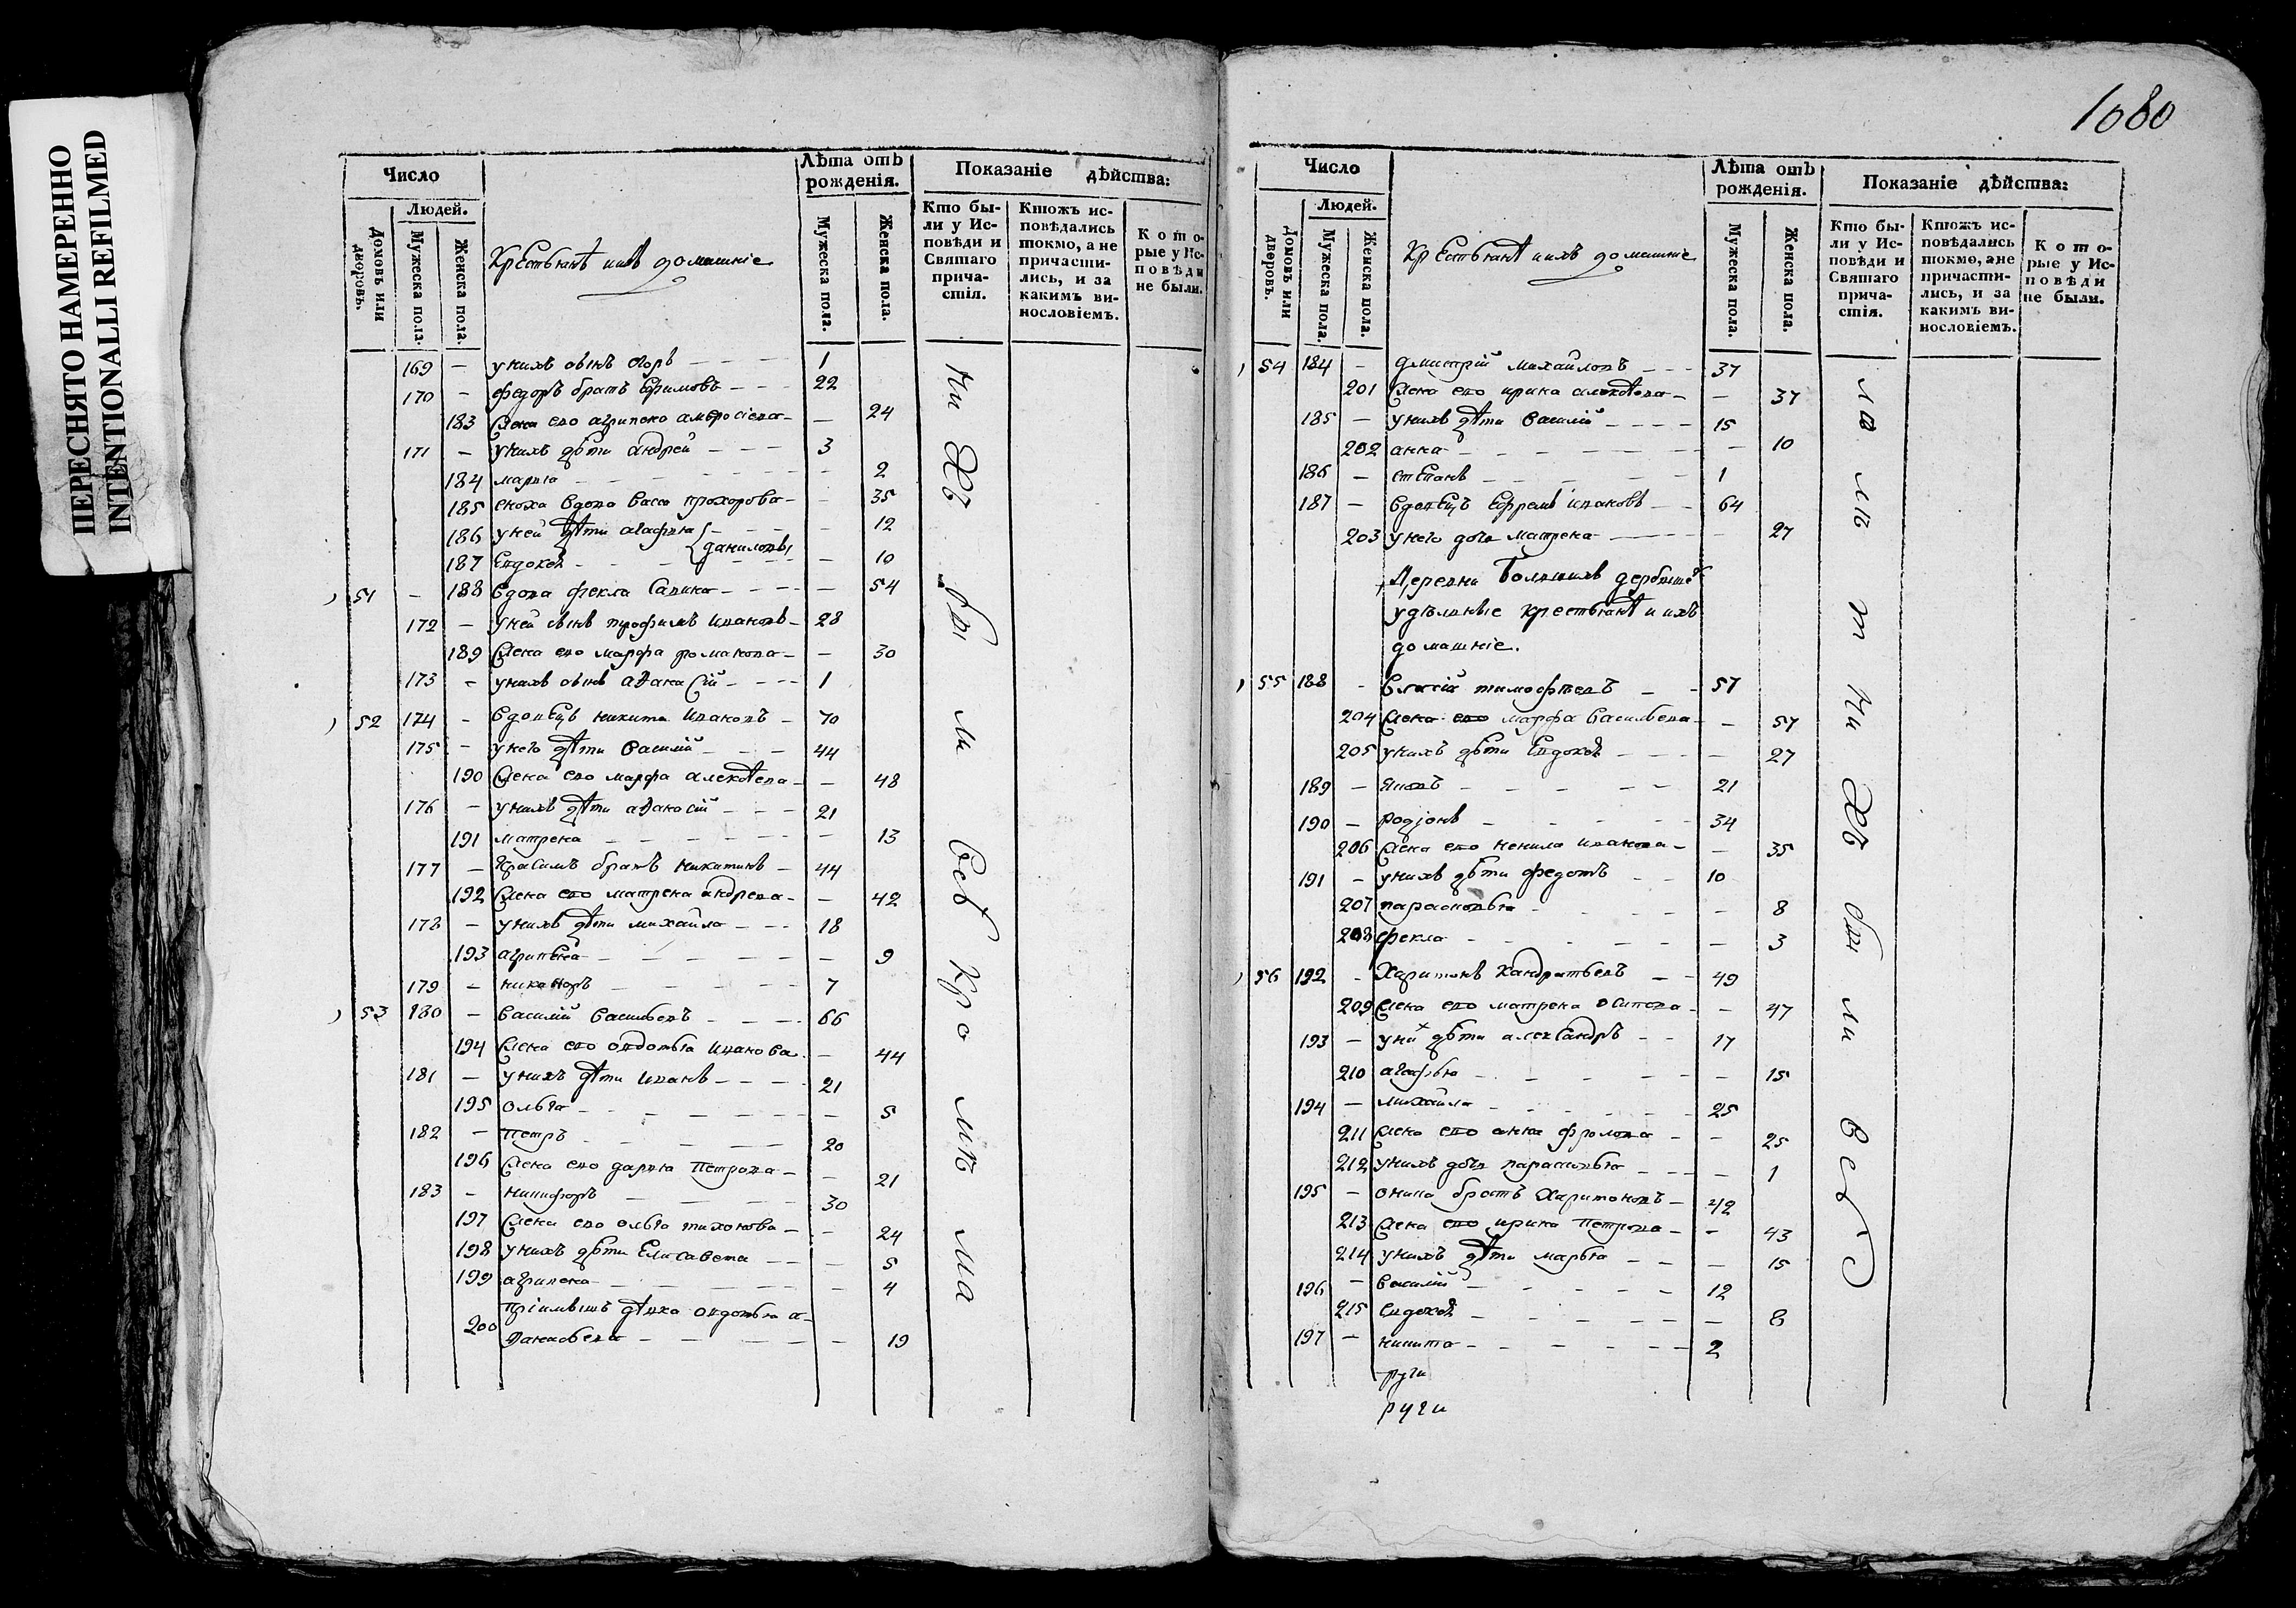 ПЕРЕСНЯТО НАМЕРЕННО
INTENTIONALLI REFILMED
Число
Людей.
Домовъ или дворовъ.
Мужеска пола.
Женска пола.
Крестьянѣ иихъ домашніе
Лѣта отъ рожденія.
Мужеска пола.
Женска пола.
Показаніе дѣйства:
Кто были у Исповѣди и Святаго причастія.
Ктожъ исповѣдались токмо, а не причастились, и за какимъ винословіемъ.
Которые у Исповѣди не были.
169 – унихъ сынъ 1
170 – федоръ братъ Ефимовъ – – – 22
183 жена ево агрипена амвросіева – – 24
171 – унихъ дѣти андрей – – – 3
184 марья – – – 2
185 сноха вдова васса прохорова – – 35
186 уней дѣти агафья – – – 12
даниловы
187 Евдокея – – – 10
51 – 188 вдова фекла Савина – – – 54
172 – уней сынъ трофимъ ивановъ – 28
189 жена ево марфа романова – – 30
173 – унихъ сынъ афанасій – – – 1
52 174 – вдовецъ никита ивановъ – 70
175 – унего дѣти василій – – – 44
190 жена ево марфа алексѣева – – 48
176 – унихъ дѣти афанасій – – – 21
191 матрена – – – 13
177 – герасимъ братъ никитинъ – 44
192 жена ево матрена андреева – – 42
178 – унихъ дѣти михайла – – – 18
193 агрипена – – – 9
179 – никаноръ – – – 7
53 180 – василій васильевъ – – – 66
194 жена ево овдотья иванова – 44
181 – унихъ дѣти иванъ – – – 21
195 ольга – – – 5
182 – Петръ – – – 20
196 жена ево дарья Петрова – – 21
183 – никифоръ – – – 30
197 жена ево ольга тихонова – – 24
198 унихъ дѣти Елисавета – – – 5
199 агрипена – – – 4
200 пріимышъ дѣвка овдотья а-
фанасьева – – – 19
ни хъ бы ли всѣ кро мѣ ма
1080
Число
Людей.
Домовъ или дворовъ.
Мужеска пола.
Женска пола.
Крестьянѣ иихъ домашніе
Лѣта отъ рожденія.
Мужеска пола.
Женска пола.
Показаніе дѣйства:
Кто были у Исповѣди и Святаго причастія.
Ктожъ исповѣдались токмо, ане причастились, и за какимъ винословіемъ.
Которые у Исповѣди не были.
54 184 – дмитрій михайловъ – – – 37
201 жена ево ирина алексѣева – – 37
185 – унихъ дѣти василій – – – 15
202 анна – – – 10
186 – степанъ – – – 1
187 – вдовецъ Ефремъ ивановъ – – 64
203 унего дочь матрена – – 27
Деревни Большихъ
удѣльные крестьянѣ и ихъ
домашніе.
55 188 – власій тимофѣевъ – – 57
204 жена ево марфа васильева – – 57
205 унихъ дѣти Евдокея – – – 27
189 – – – – 21
190 – Родіонъ – – – 34
206 жена ево ненила иванова – – 35
191 – унихъ дѣти федотъ – – 10
207 парасковья – – – 8
208 фекла – – – 3
56 192 – Харитонъ Кандратьевъ – – 49
209 жена ево матрена осипова – – 47
193 – унихъ дѣти александръ – – 17
210 агафья – – – 15
194 – михайла – – – 25
211 жена ево анна фролова – – 25
212 унихъ дочь парасковья – – – 1
195 – братъ Харитоновъ – 42
213 жена ево ирина Петрова – – 43
214 унихъ дѣти марья – – – 15
196 – василій – – – 12
215 евдокея – – – 8
197 – никита – – – 2
ло лѣ т ни хъ бы ли всѣ
руги
руги